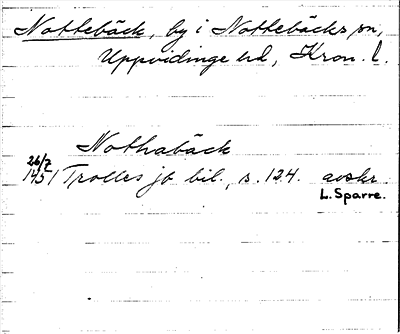 Nottebäck, by i Nottebäcks sn,
Uppvidinge hd, Kron. l.
Nothabäck
26/7
1451 Trolles jb bil., s. 124. avskr
L. Sparre.